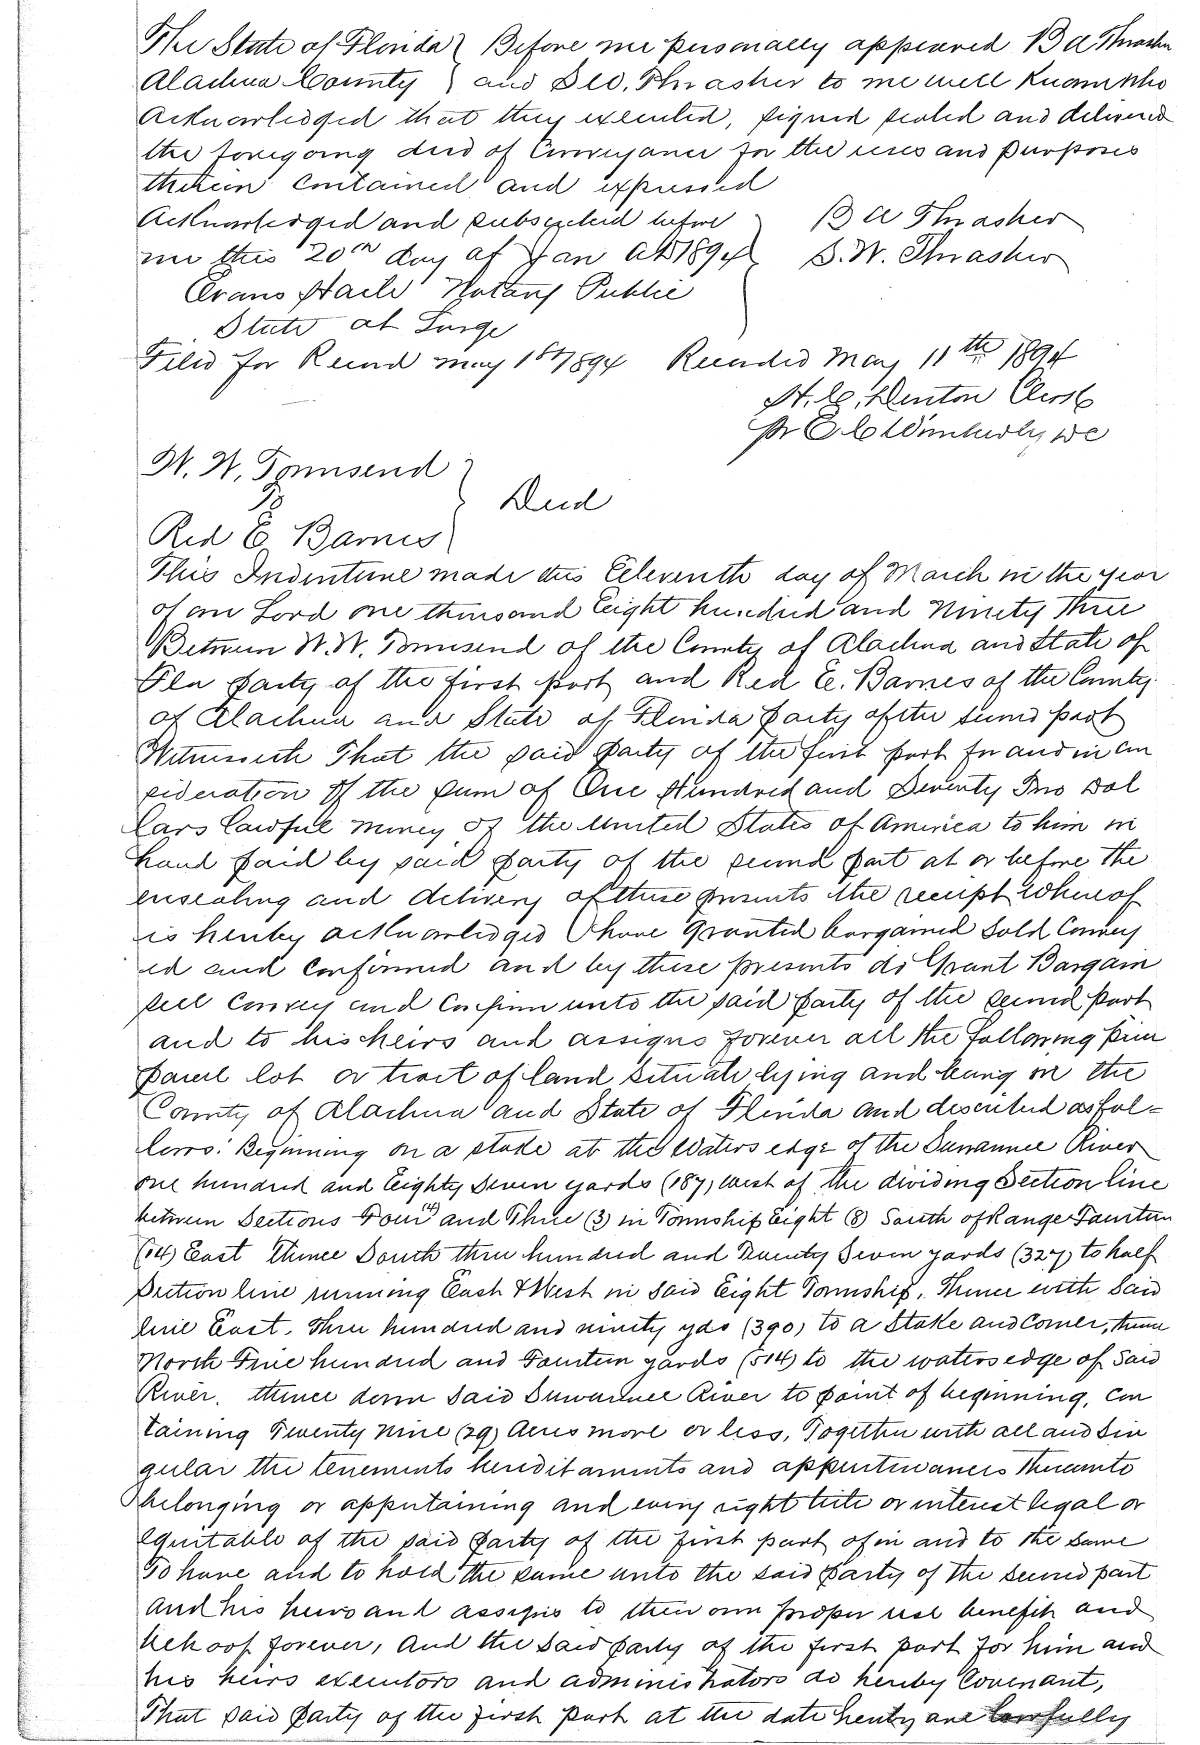 The State of Florida } Before me personally appeared B A Thrasher
Alachua County } and Geo. Thrasher to me well Known who
Acknowledged that they executed, signed sealed and delivered
the foregoing deed of Conveyance for the uses and purposes
therein contained and expressed
Acknowledged and subscribed before } B A Thrasher
me this 20th day of Jan AD 1894 } G. W. Thrasher
Evans Haile Notary Public
State at Large
Filed for Record May 1st 1894 Recorded May 11th 1894
H. C. Denton Clerk
pr E C Wimberly DC
W. W. Townsend }
To } Deed
Red E Barnes }
This Indenture made this Eleventh day of March in the year
of our Lord one thousand Eight hundred and Ninety Three
Between W. W. Townsend of the County of Alachua and State of
Fla party of the first part and Red E. Barnes of the County
of Alachua and State of Florida party of the second part
Witnesseth That the said party of the first part for and in con
sideration of the sum of One Hundred and Seventy Two Dol
lars lawful money of the United States of America to him in
hand paid by said party of the second part at or before the
ensealing and delivery of these presents the receipt whereof
is hereby acknowledged have Granted bargained Sold Convey
ed and Confirmed and by these presents do Grant Bargain
sell Convey and Confirm unto the said party of the second part
and to his heirs and assigns forever all the following piece
parcel lot or tract of land situate lying and being in the
County of Alachua and State of Florida and described as fol=
lows: Beginning on a stake at the Waters edge of the Suwannee River
one hundred and Eighty Seven yards (187) west of the dividing Section line
between Sections Four (4) and Three (3) in Township Eight (8) South of Range Fourteen
(14) East thence South three hundred and Twenty Seven yards (327) to half
Section line running East & West in said Eight Township. Thence with Said
line East. Three hundred and ninety yds (390) to a Stake and Corner, thence
North Five hundred and Fourteen yards (514) to the waters edge of Said
River. thence down Said Suwannee River to point of beginning, con
taining Twenty Nine (29) Acres more or less. Together with all and Sin
gular the tenements hereditaments and appurtenances thereunto
belonging or appertaining and every right title or interest legal or
equitable of the said party of the first part of in and to the same
To have and to hold the same unto the said party of the second part
and his heirs and assigns to their own proper use benefit and
behoof forever, And the said party of the first part for him and
his heirs executors and administrators do hereby Covenant,
That said party of the first part at the date hereby are lawfully